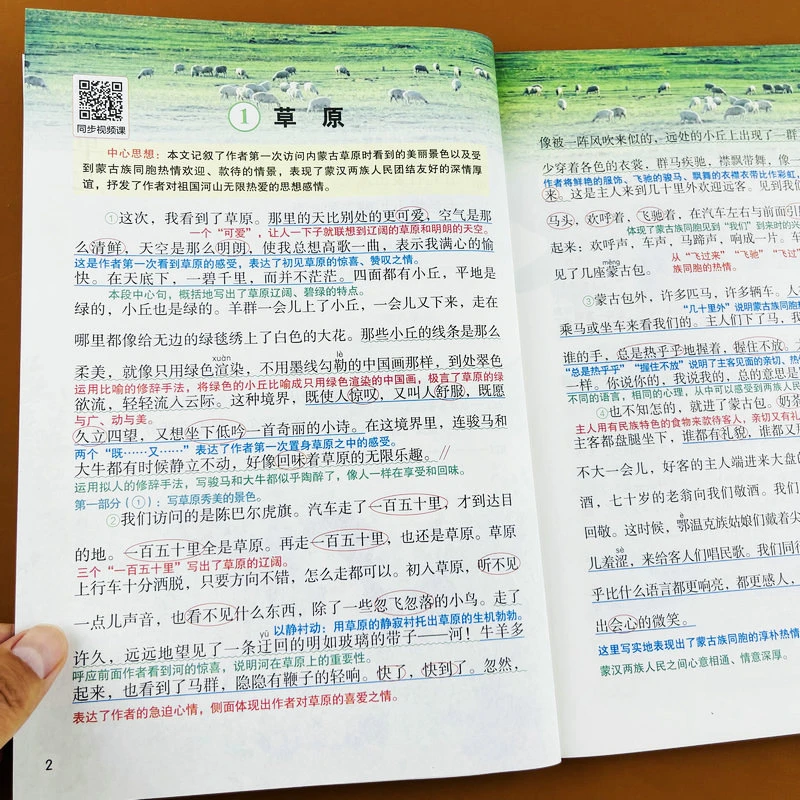 同步视频课
1 草原
中心思想：本文记叙了作者第一次访问内蒙古草原时看到的美丽景色以及受
到蒙古族同胞热情欢迎、款待的情景，表现了蒙汉两族人民团结友好的深情厚
谊，抒发了作者对祖国河山无限热爱的思想感情。
①这次，我看到了草原。那里的天比别处的更可爱，空气是那
一个“可爱”，让人一下子就联想到辽阔的草原和明朗的天空。
么清鲜，天空是那么明朗，使我总想高歌一曲，表示我满心的愉
这是作者第一次看到草原的感受，表达了初见草原的惊喜、赞叹之情。
快。在天底下，一碧千里，而并不茫茫。四面都有小丘，平地是
本段中心句，概括地写出了草原辽阔、碧绿的特点。
绿的，小丘也是绿的。羊群一会儿上了小丘，一会儿又下来，走在
哪里都像给无边的绿毯绣上了白色的大花。那些小丘的线条是那么
xuàn lè
柔美，就像只用绿色渲染，不用墨线勾勒的中国画那样，到处翠色
运用比喻的修辞手法，将绿色的小丘比喻成只用绿色渲染的中国画，极言了草原的绿
欲流，轻轻流入云际。这种境界，既使人惊叹，又叫人舒服，既愿
与广、动与美。
久立四望，又想坐下低吟一首奇丽的小诗。在这境界里，连骏马和
两个“既……又……”表达了作者第一次置身草原之中的感受。
大牛都有时候静立不动，好像回味着草原的无限乐趣。//
运用拟人的修辞手法，写骏马和大牛都似乎陶醉了，像人一样在享受和回味。
第一部分（①）：写草原秀美的景色。
②我们访问的是陈巴尔虎旗。汽车走了一百五十里，才到达目
的地。一百五十里全是草原。再走一百五十里，也还是草原。草原
三个“一百五十里”写出了草原的辽阔。
上行车十分洒脱，只要方向不错，怎么走都可以。初入草原，听不见
一点儿声音，也看不见什么东西，除了一些忽飞忽落的小鸟。走了
yū 以静衬动：用草原的静寂衬托出草原的生机勃勃。
许久，远远地望见了一条迂回的明如玻璃的带子——河！牛羊多
呼应前面作者看到河的惊喜，说明河在草原上的重要性。
起来，也看到了马群，隐隐有鞭子的轻响。快了，快到了。忽然，
表达了作者的急迫心情，侧面体现出作者对草原的喜爱之情。
2
像被一阵风吹来似的，远处的小丘上出现了一群
少穿着各色的衣裳，群马疾驰，襟飘带舞，像一
作者将鲜艳的服饰、飞驰的骏马、飘舞的衣襟衣带比作彩虹，
来。这是主人来到几十里外欢迎远客。见到我们
马头，欢呼着，飞驰着，在汽车左右与前面引
体现了蒙古族同胞见到“我们”到来时的兴
起来：欢呼声，车声，马蹄声，响成一片。车
méng 从“飞过来”“飞驰”“飞过
见了几座蒙古包。 族同胞的热情。
③蒙古包外，许多匹马，许多辆车。人
“几十里外”说明蒙古族同胞
乘马或坐车来看我们的。主人们下了马，我
谁的手，总是热乎乎地握着，握住不放。
“总是热乎乎”“握住不放”说明了主客见面的亲切、热
一样。你说你的，我说我的，总的意思是
不同的语言，相同的心理，从中可以感受到两族人民
④也不知怎的，就进了蒙古包。奶茶
主人用有民族特色的食物来款待客人，亲切又有礼
主客都盘腿坐下，谁都有礼貌，谁都又那
不大一会儿，好客的主人端进来大盘的
酒，七十岁的老翁向我们敬酒。我们
回敬。这时候，鄂温克族姑娘们戴着尖
sè
儿羞涩，来给客人们唱民歌。我们同行
乎比什么语言都更响亮，都更感人，
出会心的微笑。
这里写实地表现出了蒙古族同胞的淳朴热情
蒙汉两族人民之间心意相通、情意深厚。